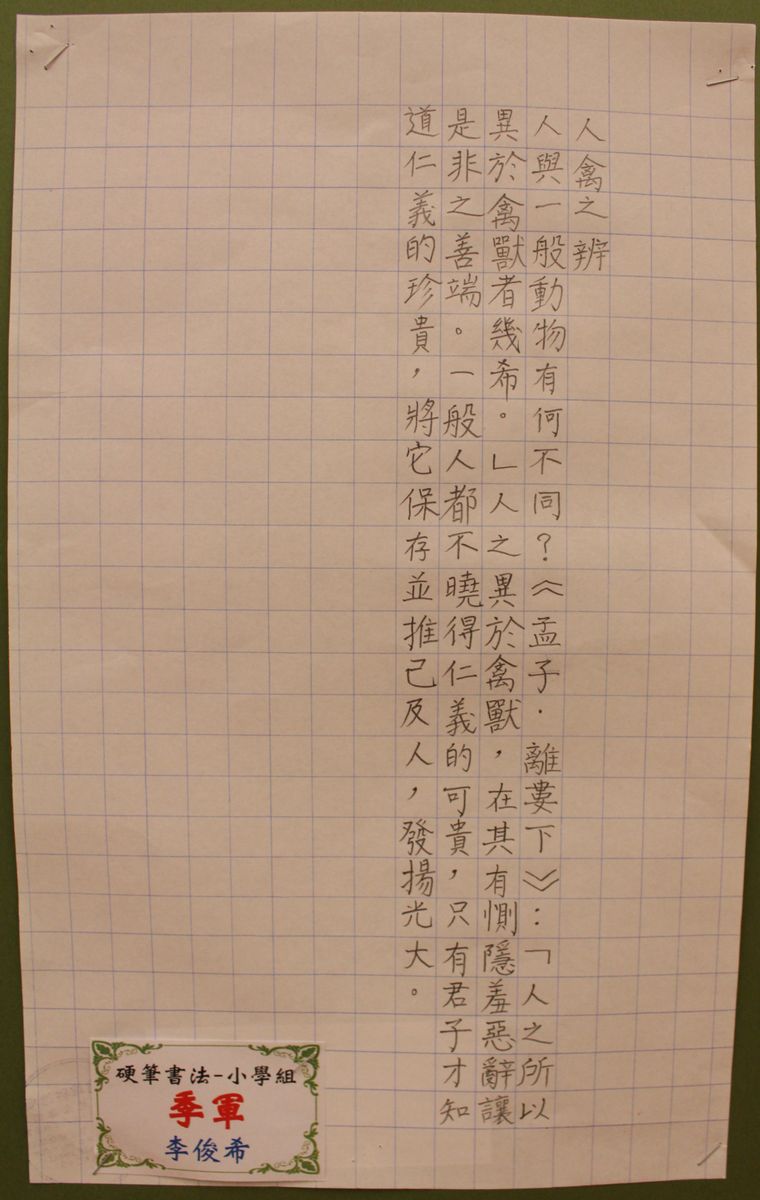 人禽之辨
人與一般動物有何不同？《孟子．離婁下》：「人之所以
異於禽獸者幾希。」人之異於禽獸，在其有惻隱羞惡辭讓
是非之善端。一般人都不曉得仁義的可貴，只有君子才知
道仁義的珍貴，將它保存並推己及人，發揚光大。
硬筆書法-小學組
季軍
李俊希